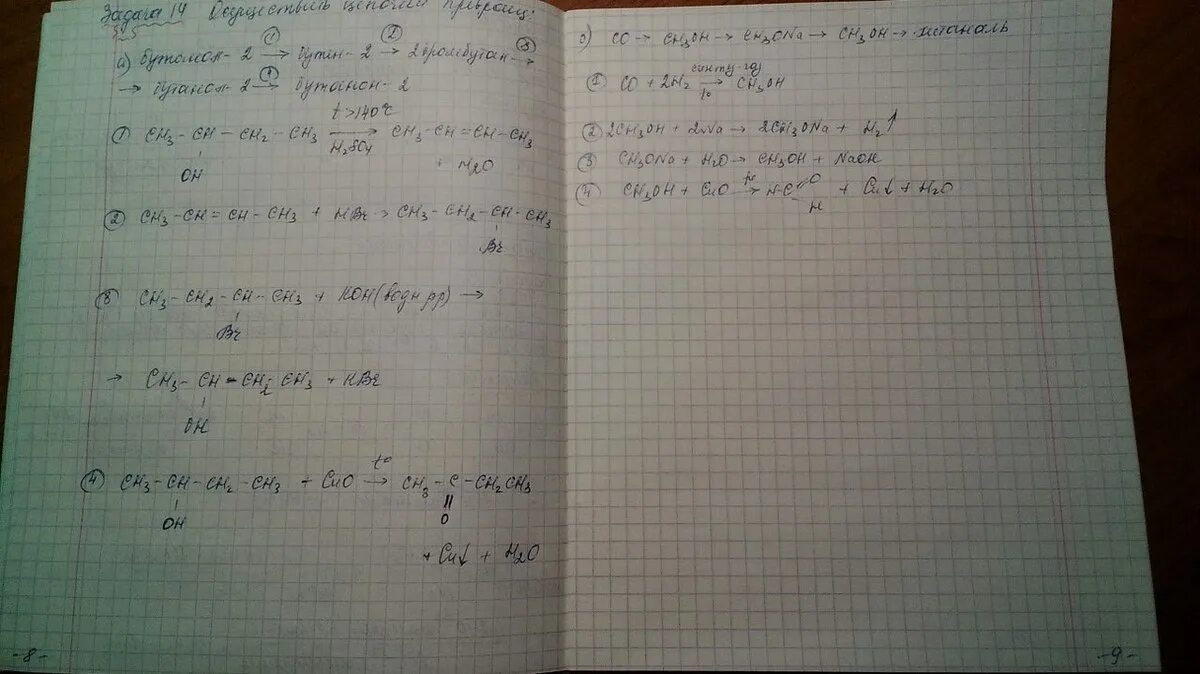 Задача 14 Осуществить цепочки превращ:
а) Бутанол-2 ① → бутен-2 ② → 2 бромбутан ③ →
→ Бутанол-2 ④ → Бутанон-2
① CH3 - CH - CH2 - CH3 t>140°C → H2SO4 CH3 - CH = CH - CH3
OH
+ H2O
② CH3 - CH = CH - CH3 + HBr → CH3 - CH2 - CH - CH3
Br
③ CH3 - CH2 - CH - CH3 + KOH (водн рр) →
Br
→ CH3 - CH - CH2 CH3 + HBr
OH
④ CH3 - CH - CH2 - CH3 + CuO t° → CH3 - C - CH2CH3
OH
O
+ Cu↓ + H2O
-8-
б) CO → CH3OH → CH3ONa → CH3OH → метаналь
① CO + 2H2 синтз-газ → t° CH3OH
② 2CH3OH + 2Na → 2CH3ONa + H2↑
③ CH3ONa + H2O → CH3OH + NaOH
④ CH3OH + CuO t° → H-C=O + Cu↓ + H2O
H
-9-